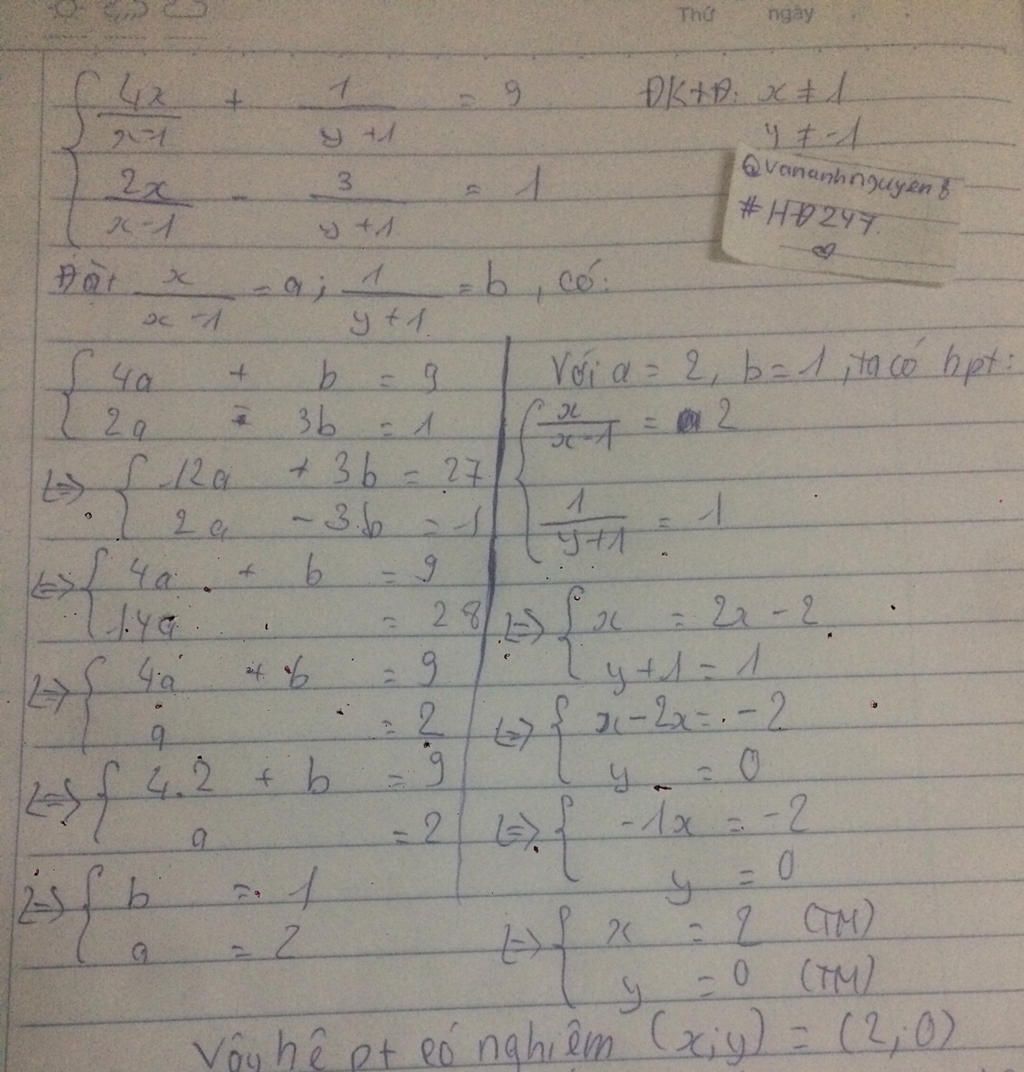 Thứ ngày
4x/x-1 + 1/y+1 = 9 ĐKXĐ: x ≠ 1
y ≠ -1
2x/x-1 - 3/y+1 = 1
@vananhnguyen8
#HĐ247.
Đặt x/x-1 = a; 1/y+1 = b, có:
4a + b = 9
2a - 3b = 1
<=> 12a + 3b = 27
2a - 3b = 1
<=> 4a + b = 9
14a = 28
<=> 4a + b = 9
a = 2
<=> 4.2 + b = 9
a = 2
<=> b = 1
a = 2
Với a = 2, b = 1, ta có hpt:
x/x-1 = 2
1/y+1 = 1
<=> x = 2x - 2
y+1 = 1
<=> x-2x = -2
y = 0
<=> -1x = -2
y = 0
<=> x = 2 (TM)
y = 0 (TM)
Vậy hệ pt có nghiệm (x;y) = (2;0)